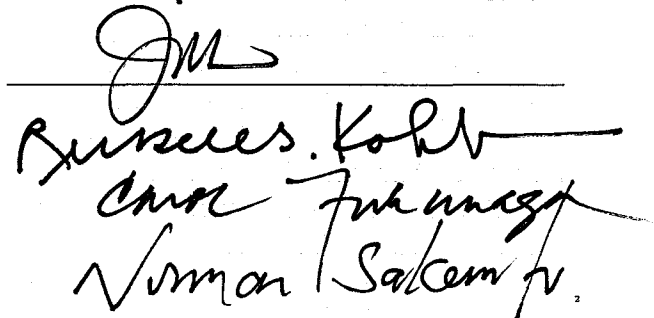 Russell S. Kokubun
Carol Fukunaga
Norman Sakamoto
2